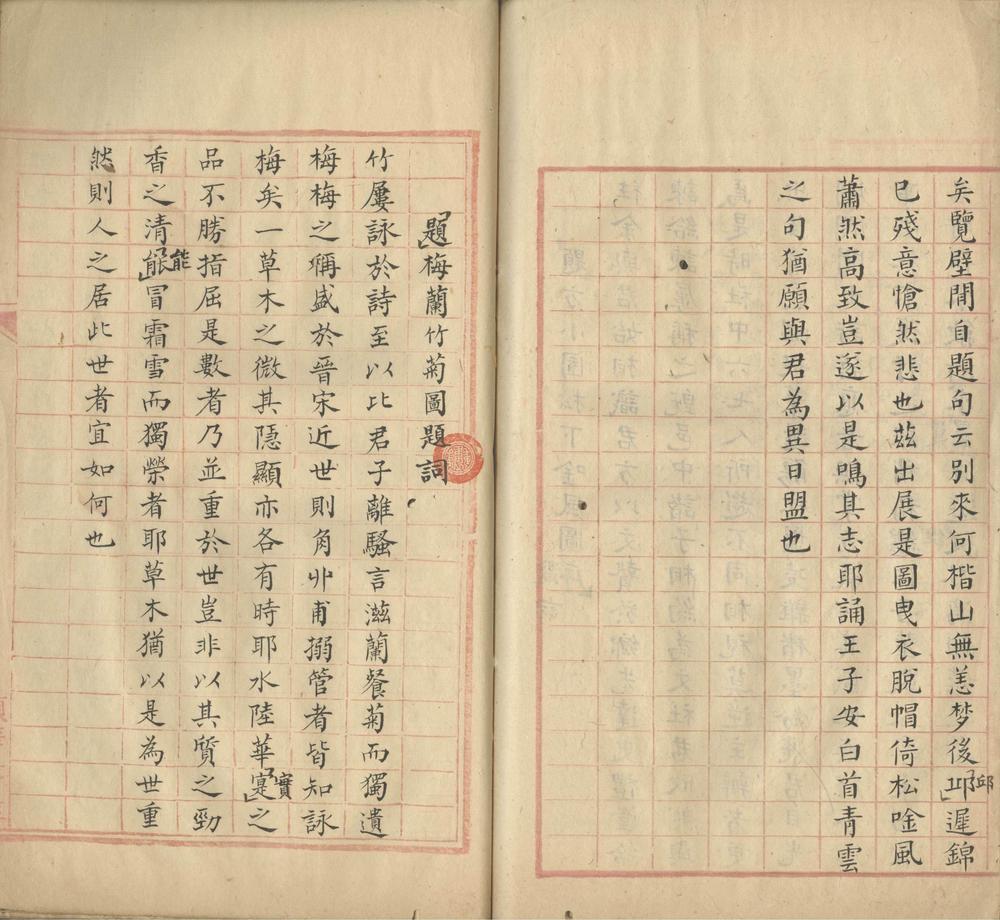 矣覽壁間自題句云別來何楷山無恙梦後邱遲錦
已殘意愴然悲也茲出展是圖曳衣脫帽倚松唫風
蕭然高致豈遂以是鳴其志耶誦王子安白首青雲
之句猶願與君為異日盟也
題梅蘭竹菊圖題詞
竹屢詠於詩至以比君子離騷言滋蘭餐菊而獨遺
梅梅之稱盛於晉宋近世則角丱甫搦管者皆知詠
梅矣一草木之微其隱顯亦各有時耶水陸華實之
品不勝指屈是數者乃並重於世豈非以其質之勁
香之清能冒霜雪而獨榮者耶草木猶以是為世重
然則人之居此世者宜如何也